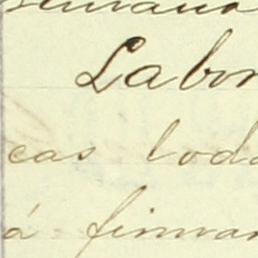 semana
Labor
cas toda
á firmar